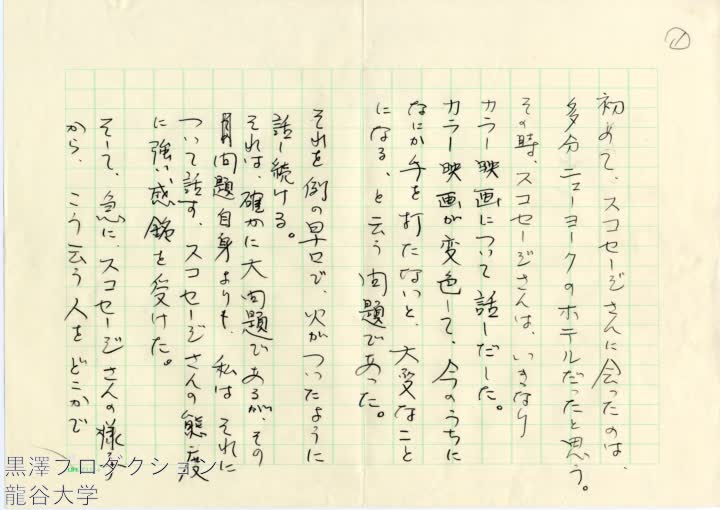 1
初めて、スコセージさんに会ったのは、
多分ニューヨークのホテルだったと思う。
その時、スコセージさんは、いきなり
カラー映画について話しだした。
カラー映画が変色して、今のうちに
なにか手を打たないと、大変なこと
になる、と云う問題であった。
それを例の早口で、火がついたように
話し続ける。
それは、確かに大問題であるが、その
問題自身よりも、私は それに
ついて話す、スコセージさんの態度
に強い感銘を受けた。
そして、急に、スコセージさんの様な
から、こう云う人をどこかで
黒澤プロダクション
龍谷大学